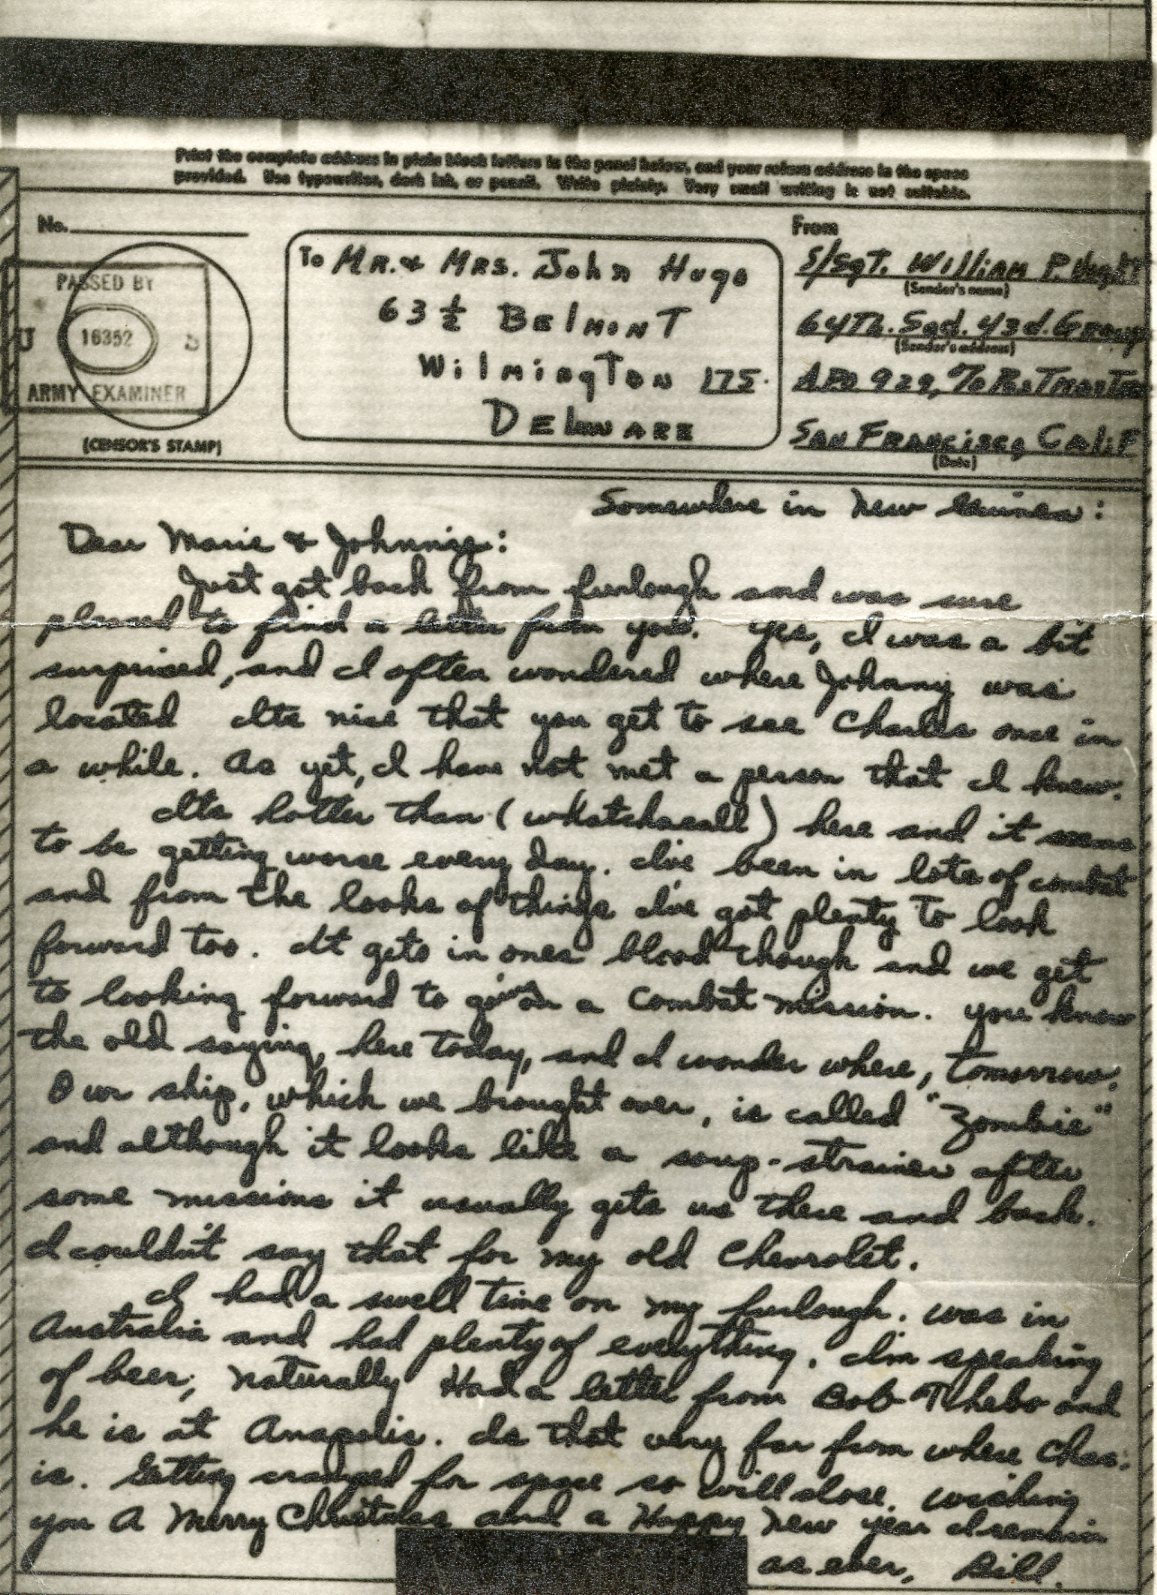 Print the complete address in plain block letters in the panel below, and your return address in the space
provided. Use typewriter, dark ink, or pencil. Write plainly. Very small writing is not suitable.
No.
PASSED BY
U 16352 S
ARMY EXAMINER
(CENSOR'S STAMP)
To MR. & MRS. John Hugo
63 ½ BElmonT
WilmingTon 175.
DElawARE
From
S/Sgt. William P.
(Sender's name)
64Th. Sqd. 43d. Group
(Sender's address)
APO 929, % PosTmaster
San Francisco, Calif
(Date)
Somewhere in New Guinea:
Dear Marie & Johnnie:
Just got back from furlough and was sure
pleased to find a letter from you. Yes, I was a bit
surprised, and I often wondered where Johnny was
located Its nice that you get to see Charles once in
a while. As yet, I have not met a person that I knew.
Its hotter than (whatchacall) here and it seems
to be getting worse every day. I've been in lots of combat
and from the looks of things I've got plenty to look
forward too. It gets in ones blood though and we get
to looking forward to going on a combat mission. You know
the old saying, here today, and I wonder where, tomorrow.
Our ship, which we brought over, is called "Zombie"
and although it looks like a soup-strainer after
some missions it usually gets us there and back.
I couldn't say that for my old Chevrolet.
I had a swell time on my furlough. was in
Australia and had plenty of everything. I'm speaking
of beer, naturally Had a letter from Bob Tchebo and
he is at Anapolis. Is that very far from where Chas.
is. Getting cramped for space so will close. Wishing
you A Merry Christmas and a Happy New Year I remain
as ever, Bill.